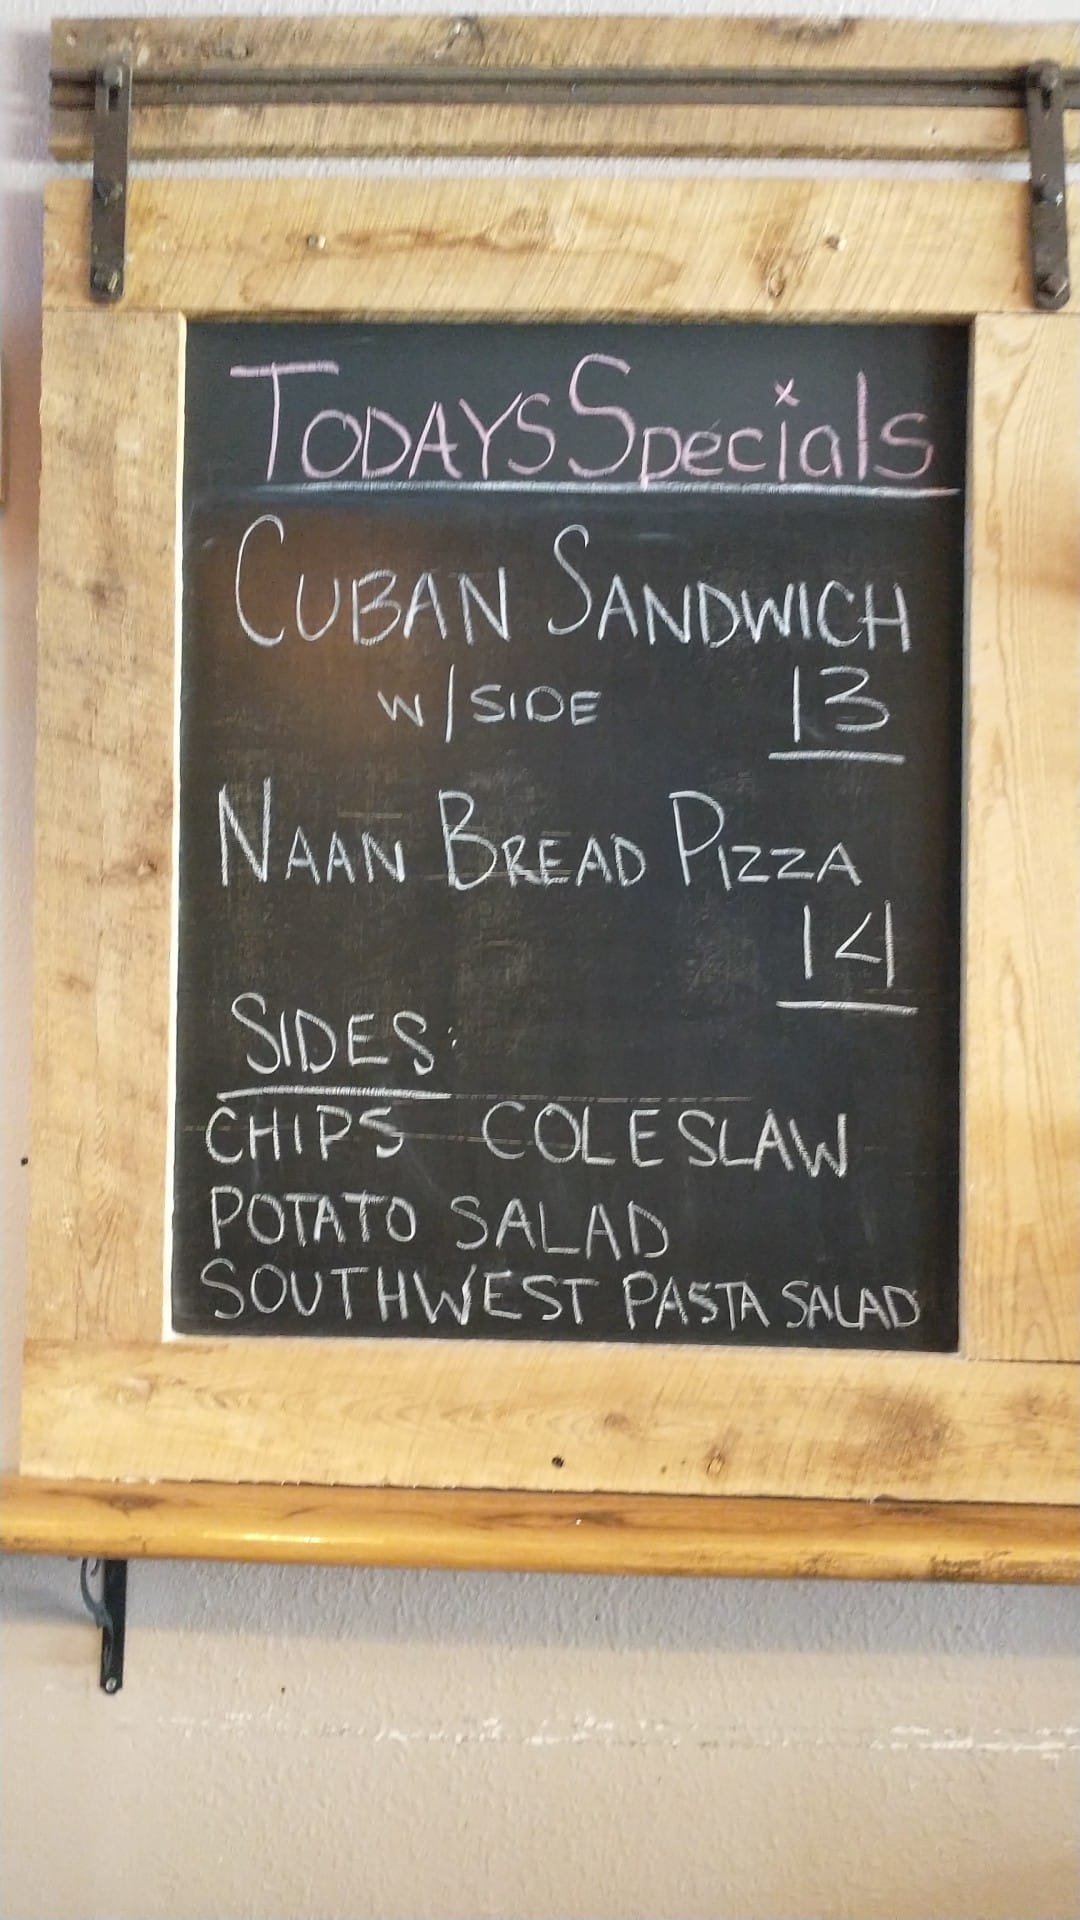 TODAYS Specials
CUBAN SANDWICH
W/SIDE 13
NAAN BREAD PIZZA
14
SIDES:
CHIPS COLESLAW
POTATO SALAD
SOUTHWEST PASTA SALAD